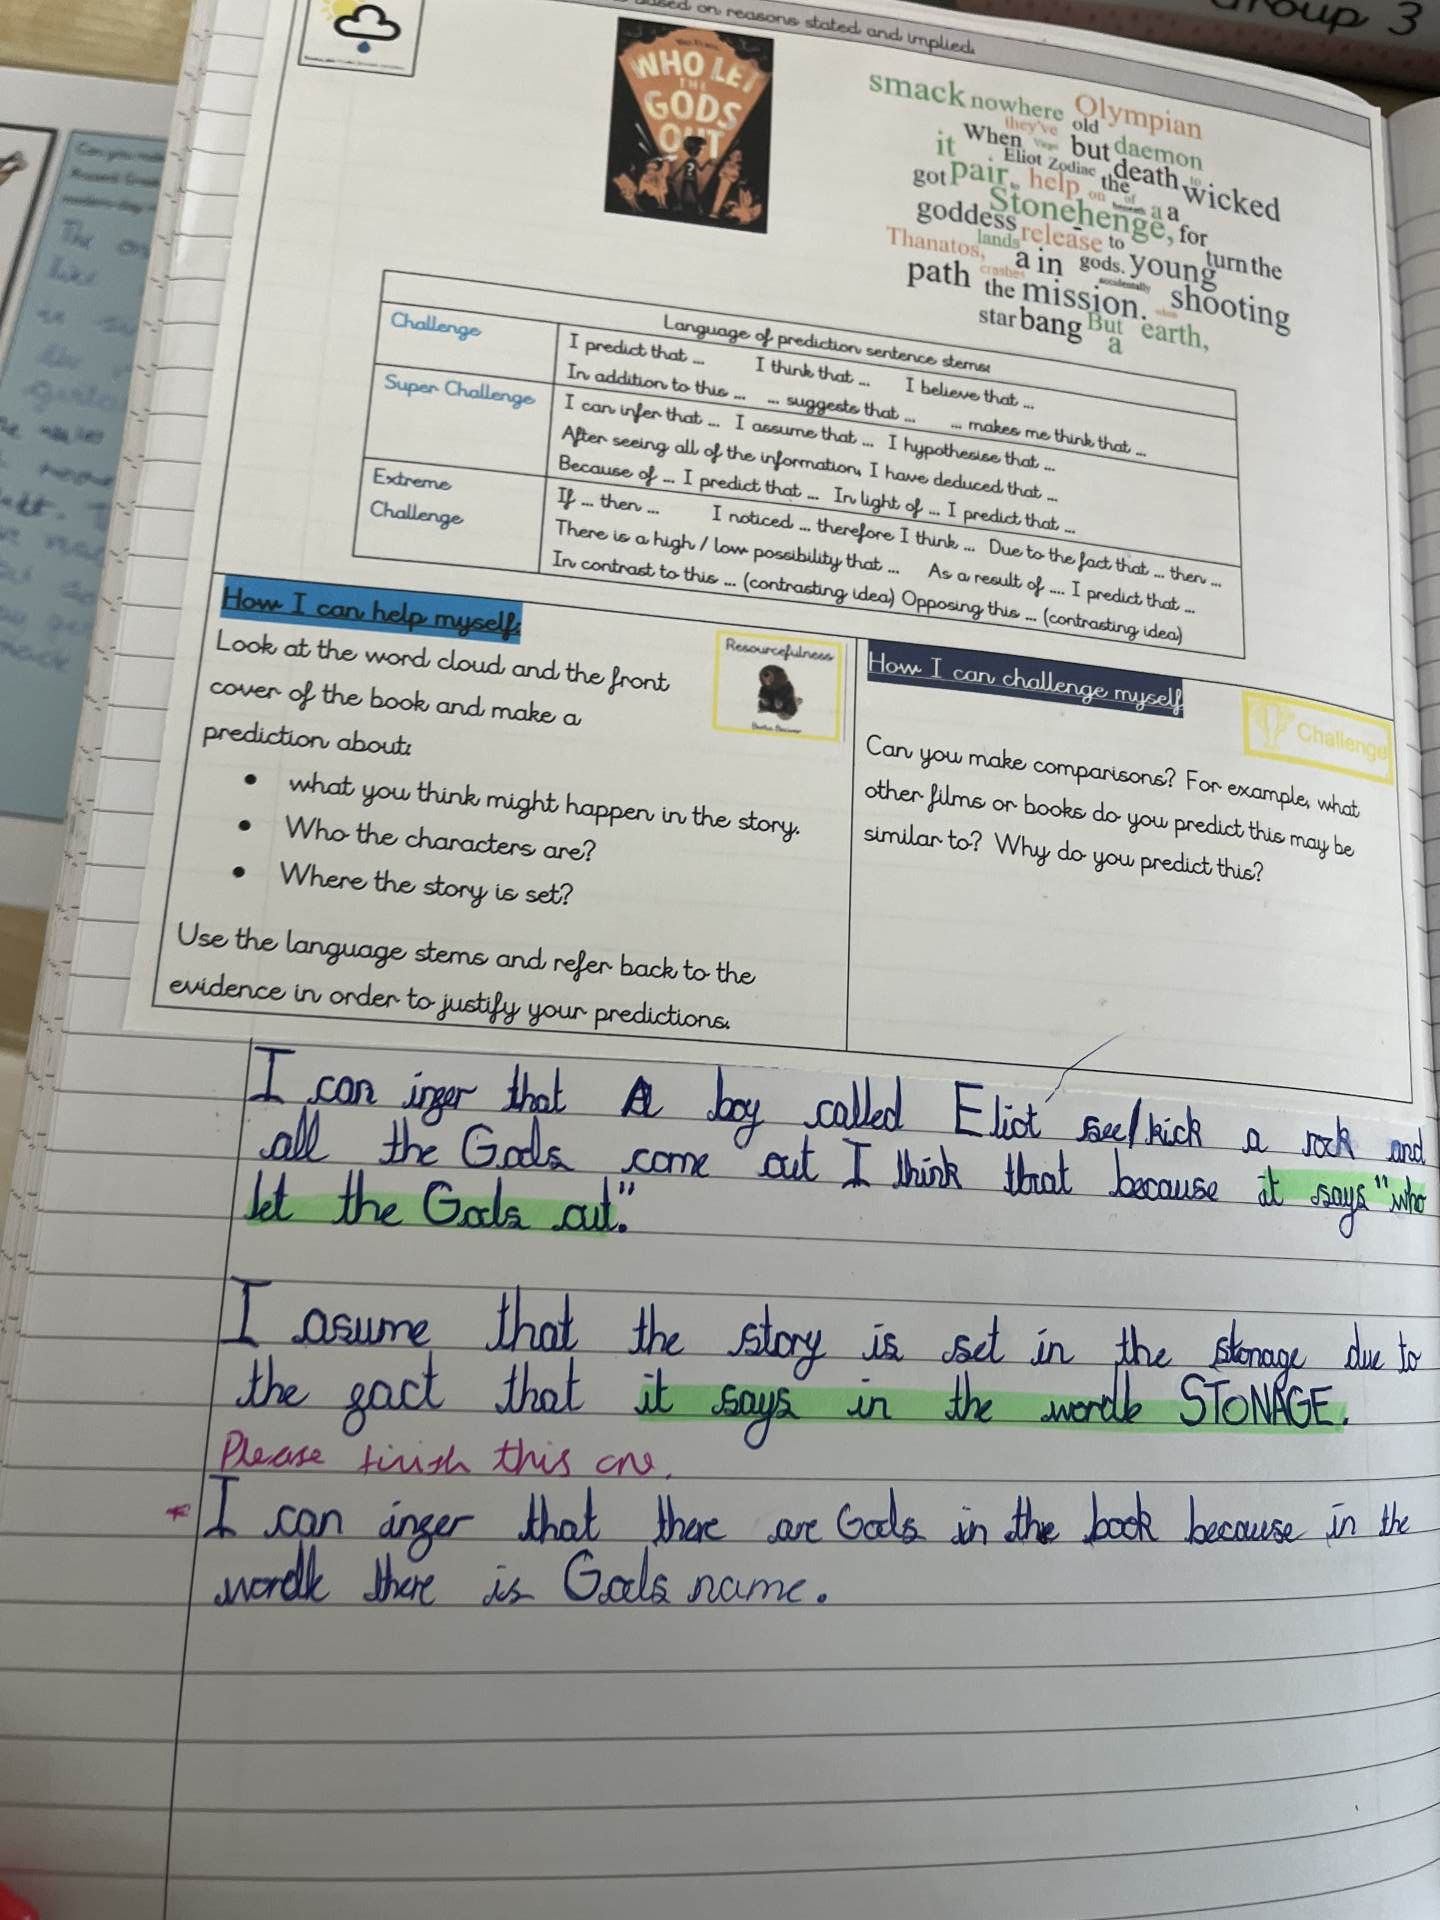 Group 3
based on reasons stated and implied.
WHO LET
THE
GODS
OUT
smack nowhere Olympian
they've old
When Virgo but daemon
it Eliot Zodiac the death to
got pair. to help on of wicked
beneath a a
Stonehenge, for
goddess release to
lands turn the
Thanatos, a in gods. young
crashes accidentally
path the mission. when shooting
star bang But earth,
a
Language of prediction sentence stems:
Challenge
I predict that ... I think that ... I believe that ...
In addition to this ... ... suggests that ... ... makes me think that ...
Super Challenge
I can infer that ... I assume that ... I hypothesise that ...
After seeing all of the information, I have deduced that ...
Because of ... I predict that ... In light of ... I predict that ...
Extreme
Challenge
If ... then ... I noticed ... therefore I think ... Due to the fact that ... then ...
There is a high / low possibility that ... As a result of .... I predict that ...
In contrast to this ... (contrasting idea) Opposing this ... (contrasting idea)
How I can help myself:
Resourcefulness
Look at the word cloud and the front
cover of the book and make a
prediction about:
• what you think might happen in the story.
• Who the characters are?
• Where the story is set?
Use the language stems and refer back to the
evidence in order to justify your predictions.
How I can challenge myself
Challenge
Can you make comparisons? For example, what
other films or books do you predict this may be
similar to? Why do you predict this?
I can inger that A boy called Eliot see/kick a rock and
all the Gods come out I think that because it says "who
let the Gods out."
I asume that the story is set in the stonage due to
the gact that it says in the wordle STONAGE.
Please finish this one.
* I can inger that there are Gods in the book because in the
wordle there is Gods name.